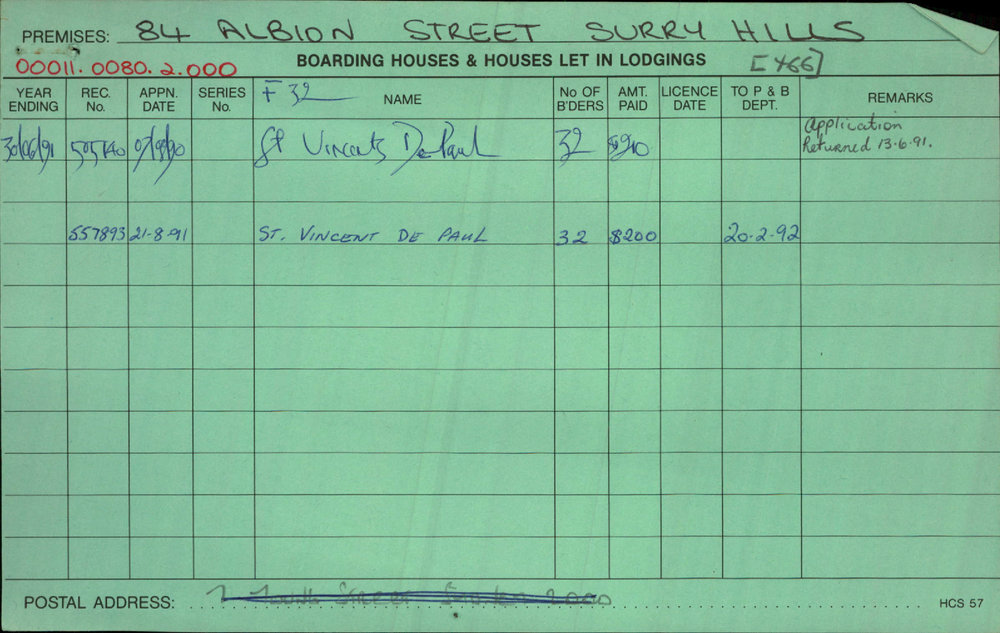 PREMISES: 84 ALBION STREET SURRY HILLS
00011.0080.2.000 BOARDING HOUSES & HOUSES LET IN LODGINGS [466]
YEAR ENDING REC. No. APPN. DATE SERIES No. F 32 NAME No OF B'DERS AMT. PAID LICENCE DATE TO P & B DEPT. REMARKS
30/06/91 St Vincents De Paul 32 Application
Returned 13.6.91.
557893 21-8-91 ST. VINCENT DE PAUL 32 $200 20-2-92
POSTAL ADDRESS: Street 2000 HCS 57